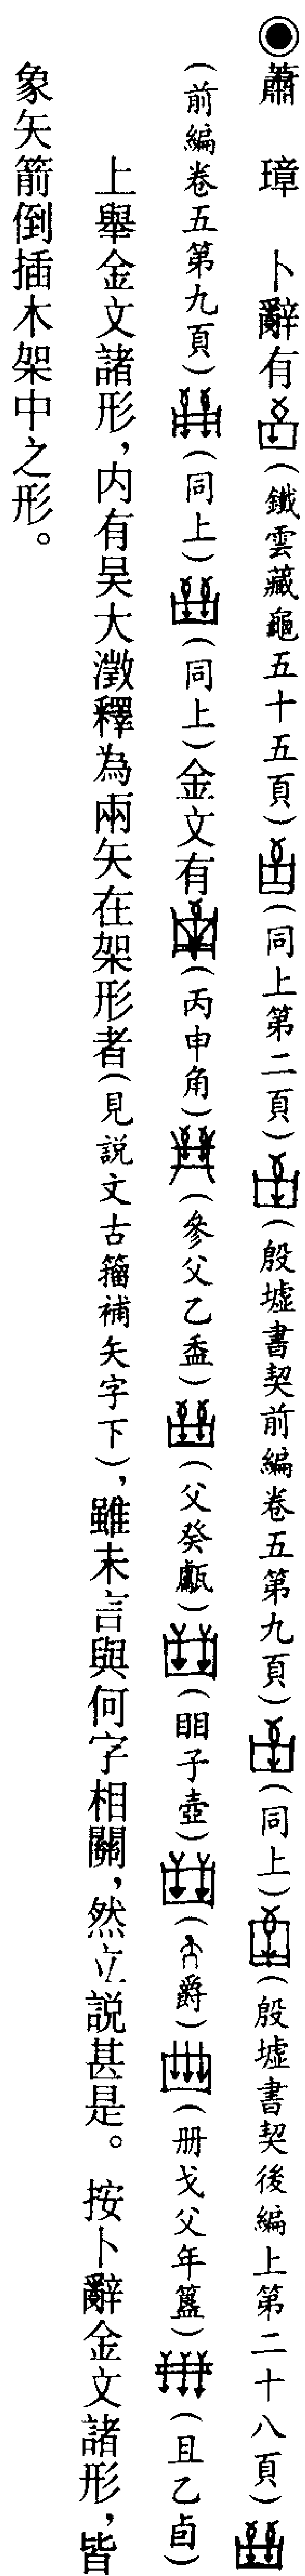 ◉蕭　璋　卜辭有（鐵雲藏龜五十五頁）（同上第二頁）（殷墟書契前編卷五第九頁）（同上）（殷墟書契後編上第二十八頁）
（前編卷五第九頁）（同上）（同上）金文有（丙申角）（參父乙盉）（父癸甗）（䀠子壺）（爵）（册戈父年簋）（且乙卣）
上舉金文諸形，内有吴大澂釋為兩矢在架形者（見説文古籀補矢字下），雖未言與何字相關，然立説甚是。按卜辭金文諸形，皆
象矢箭倒插木架中之形。